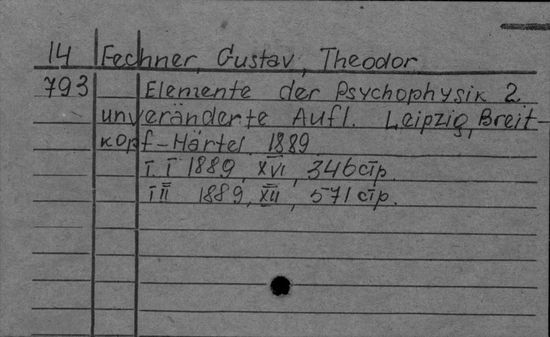 14 Fechner, Gustav, Theodor
793 Elemente der Psychophysik 2
unveränderte Aufl. Leipzig, Breit-
kopf-Härtel 1889
T. I 1889, XVI, 346 стр.
T II 1889, XII, 571 стр.